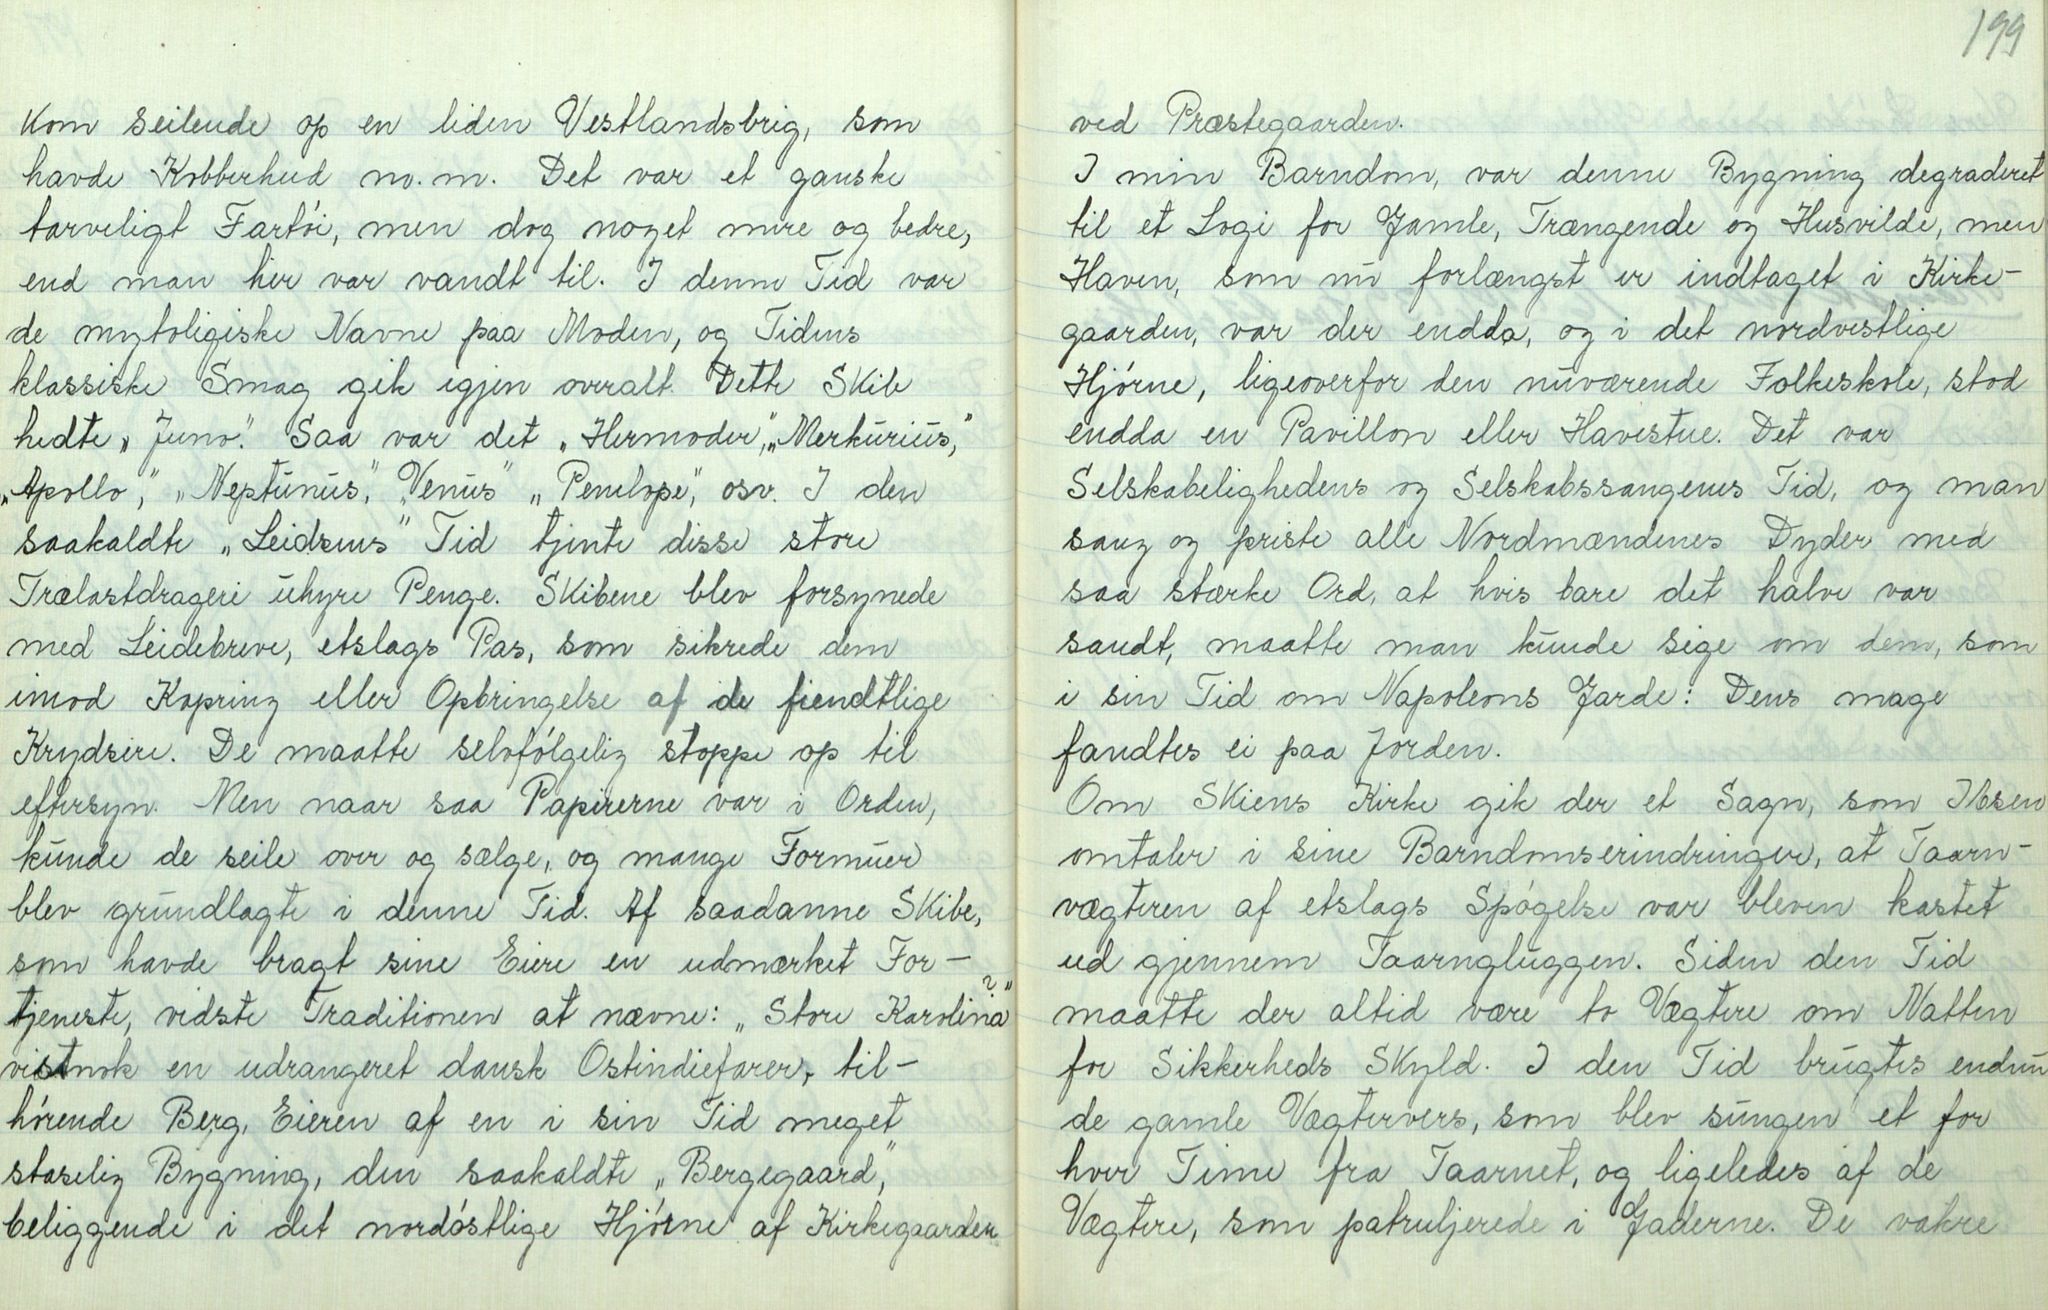 199
kom seilende op en liden Vestlandsbrig, som
havde Kobberhud m.m. Det var et ganske
tarveligt Fartöi, men dog noget mere og bedre,
end man her var vandt til. I denne Tid var
de mytoligiske Navne paa Moden, og Tidens
klassiske Smag gik igjen overalt. Dette Skib
hedte „Juno". Saa var det „Hermoder", „Merkurius,"
„Apollo," „Neptunus", „Venus" „Penelope", osv. I den
saakaldte „Leidsens" Tid tjente disse store
Trælastdrageri uhyre Penge. Skibene blev forsynede
med Leidebreve, etslags Pas, som sikrede dem
imod Kapring eller Opbringelse af de fiendtlige
Krydsere. De maatte selvfölgelig stoppe op til
eftersyn. Men naar saa Papirerne var i Orden,
kunde de seile over og sælge, og mange Formuer
blev grundlagte i denne Tid. Af saadanne Skibe,
som havde bragt sine Eiere en udmærket For-
tjeneste, vidste Traditionen at nævne: „Store Karolina ?"
vistnok en udrangeret dansk Ostindiefarer, til-
hörende Berg, Eieren af en i sin Tid meget
staselig Bygning, den saakaldte „Bergegaard",
beliggende i det nordöstlige Hjörne af Kirkegaarden
ved Præstegaarden.
I min Barndom, var denne Bygning degraderet
til et Logi for Gamle, Trængende og Husvilde, men
Haven, som nu forlængst er indtaget i Kirke-
gaarden, var der endda, og i det nordvestlige
Hjörne, ligeoverfor den nuværende Folkeskole, stod
endda en Pavillon eller Havestue. Det var
Selskabelighedens og Selskabssangenes Tid, og man
sang og priste alle Nordmændenes Dyder med
saa stærke Ord, at hvis bare det halve var
sandt, maatte man kunde sige om dem, som
i sin Tid om Napoleons Garde: Dens mage
fandtes ei paa Jorden.
Om Skiens Kirke gik der et Sagn, som Ibsen
omtaler i sine Barndomserindringer, at Taarn-
vægteren af etslags Spögelse var bleven kastet
ud gjennem Taarngluggen. Siden den Tid
maatte der altid være to Vægtere om Natten
for Sikkerheds Skyld. I den Tid brugtes endnu
de gamle Vægtervers, som blev sungen et for
hver Time fra Taarnet, og ligeledes af de
Vægtere, som patruljerede i Gaderne. De vakre